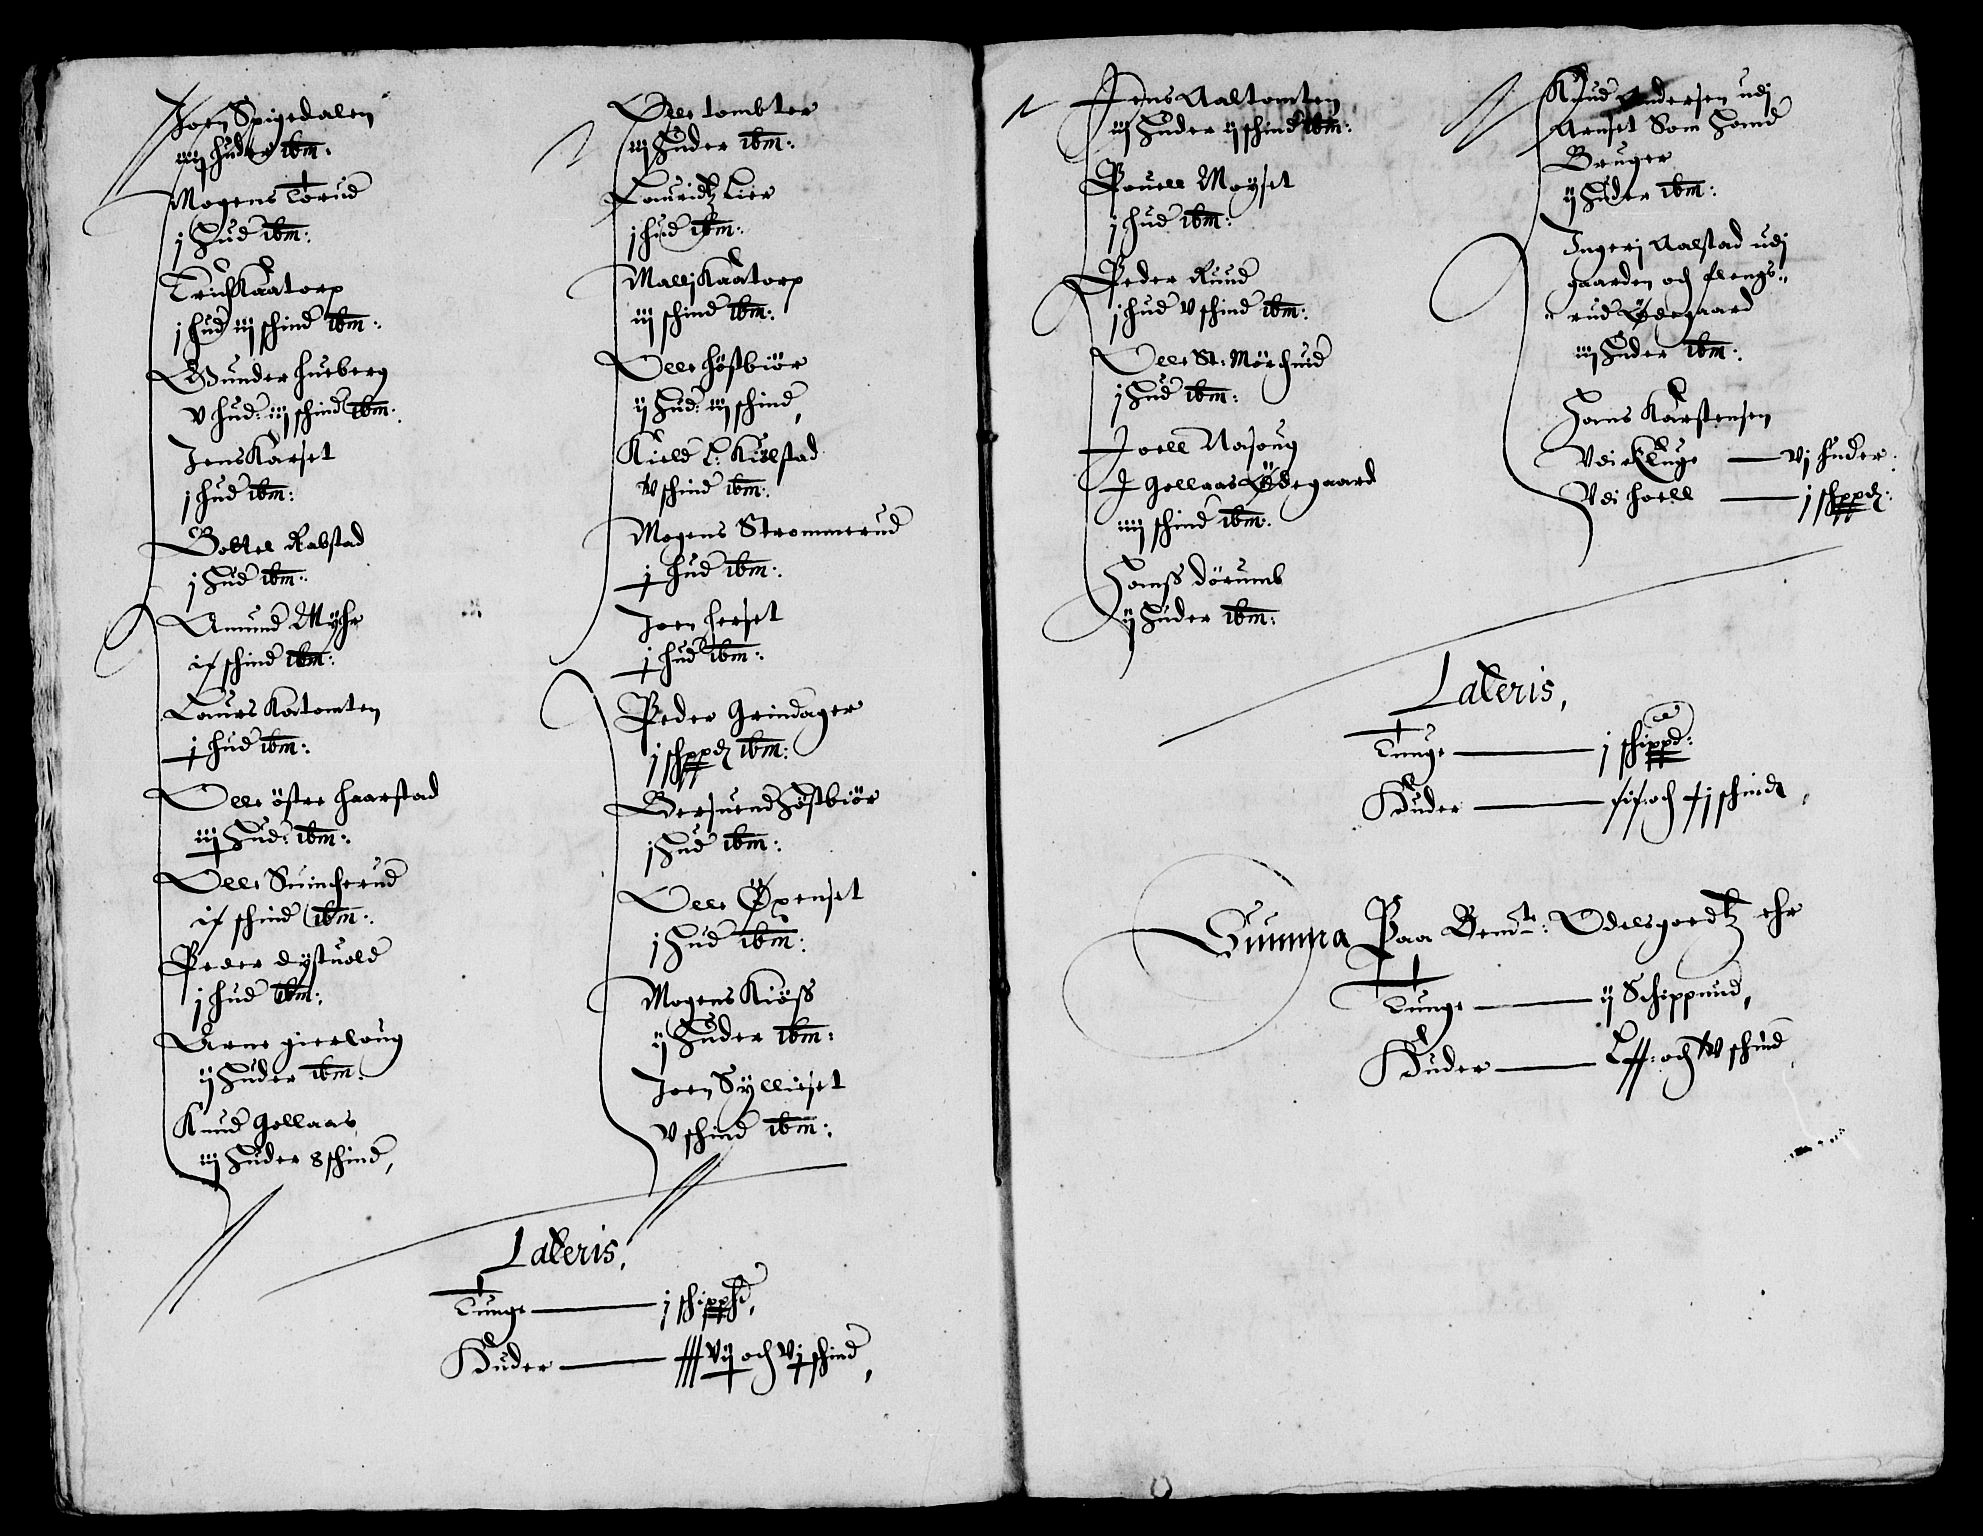 Joen Spigedalen
iiij huder ibm:
Mogens Torud
j Hud ibm:
Erich Kaatorp
j hud iiij schind ibm:
Gunder Hueberg
v hud: iiij schind ibm:
Jens Karset
j hud ibm:
Bottel Rabstad
j Hud ibm:
Amund Myhr
schind ibm:
Laurs Katomten
j hud ibm:
Olle östre haarstad
iij Hud: ibm:
Olle Suincherud
schind ibm:
Peder dystuold
j hud ibm:
Arne gierloug
ij Huder ibm:
Knud Gollaas
iij Huder 8 schind,
Olle tombter
iij Huder ibm:
Lauridtz Lier
j hud ibm:
Malli Kaatorp
iij schind ibm:
Olle höstbiör
ij Hud: iij schind,
Kield Kiilstad
schind ibm:
Mogens Strommerud
j hud ibm:
Joen herset
j hud ibm:
Peder Grindager
j schppd ibm:
Gersuend Höstbiör
j Hud ibm:
Olle Öpenset
j Hud ibm:
Mogens Kiöss
ij Huder ibm:
Joen Syllieset
v schind ibm:
Lateris,
Tunge — j schippd,
Huder — och vj schind,
Jens Aaltomten
iij Huder ij schind ibm:
Pouell Moyset
j hud ibm:
Peder Ruud
j hud v schind ibm:
Olle St: Mörchuid
j Hud ibm:
Joell Nasoug
J Gollaas Ödegaard
iiij schind ibm:
Hanss dörumb
ij Huder ibm:
Knud Andersen udj
Arnset Som Hand
Bruger
ij Huder ibm:
Ingerj Aalstad udj
gaarden och flengs-
rud Ödegaard
iij Huder ibm:
Hans Karstensen
Vdi Kluge — vj huder
Vdi hoell — j schppd:
Lateris,
Tunge — j schippd:
Huder — och schindt,
Summa Paa Bemte: Odelsgoedtz ehr
Tunge — ij Schippund,
Huder — och schind